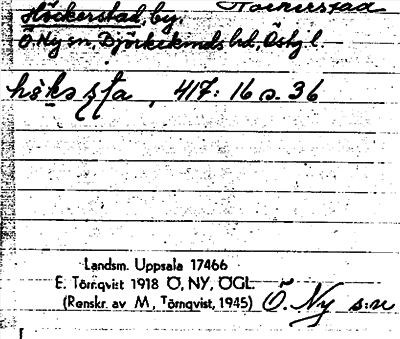 Höckerstad
Höckerstad, by.
Ö. Ny sn, Björkekinds hd, Östg l.
417: 16 s. 36
Landsm. Uppsala 17466
E. Törnqvist 1918 Ö, NY, ÖGL.
(Renskr. av M, Törnqvist, 1945) Ö. Ny s:n